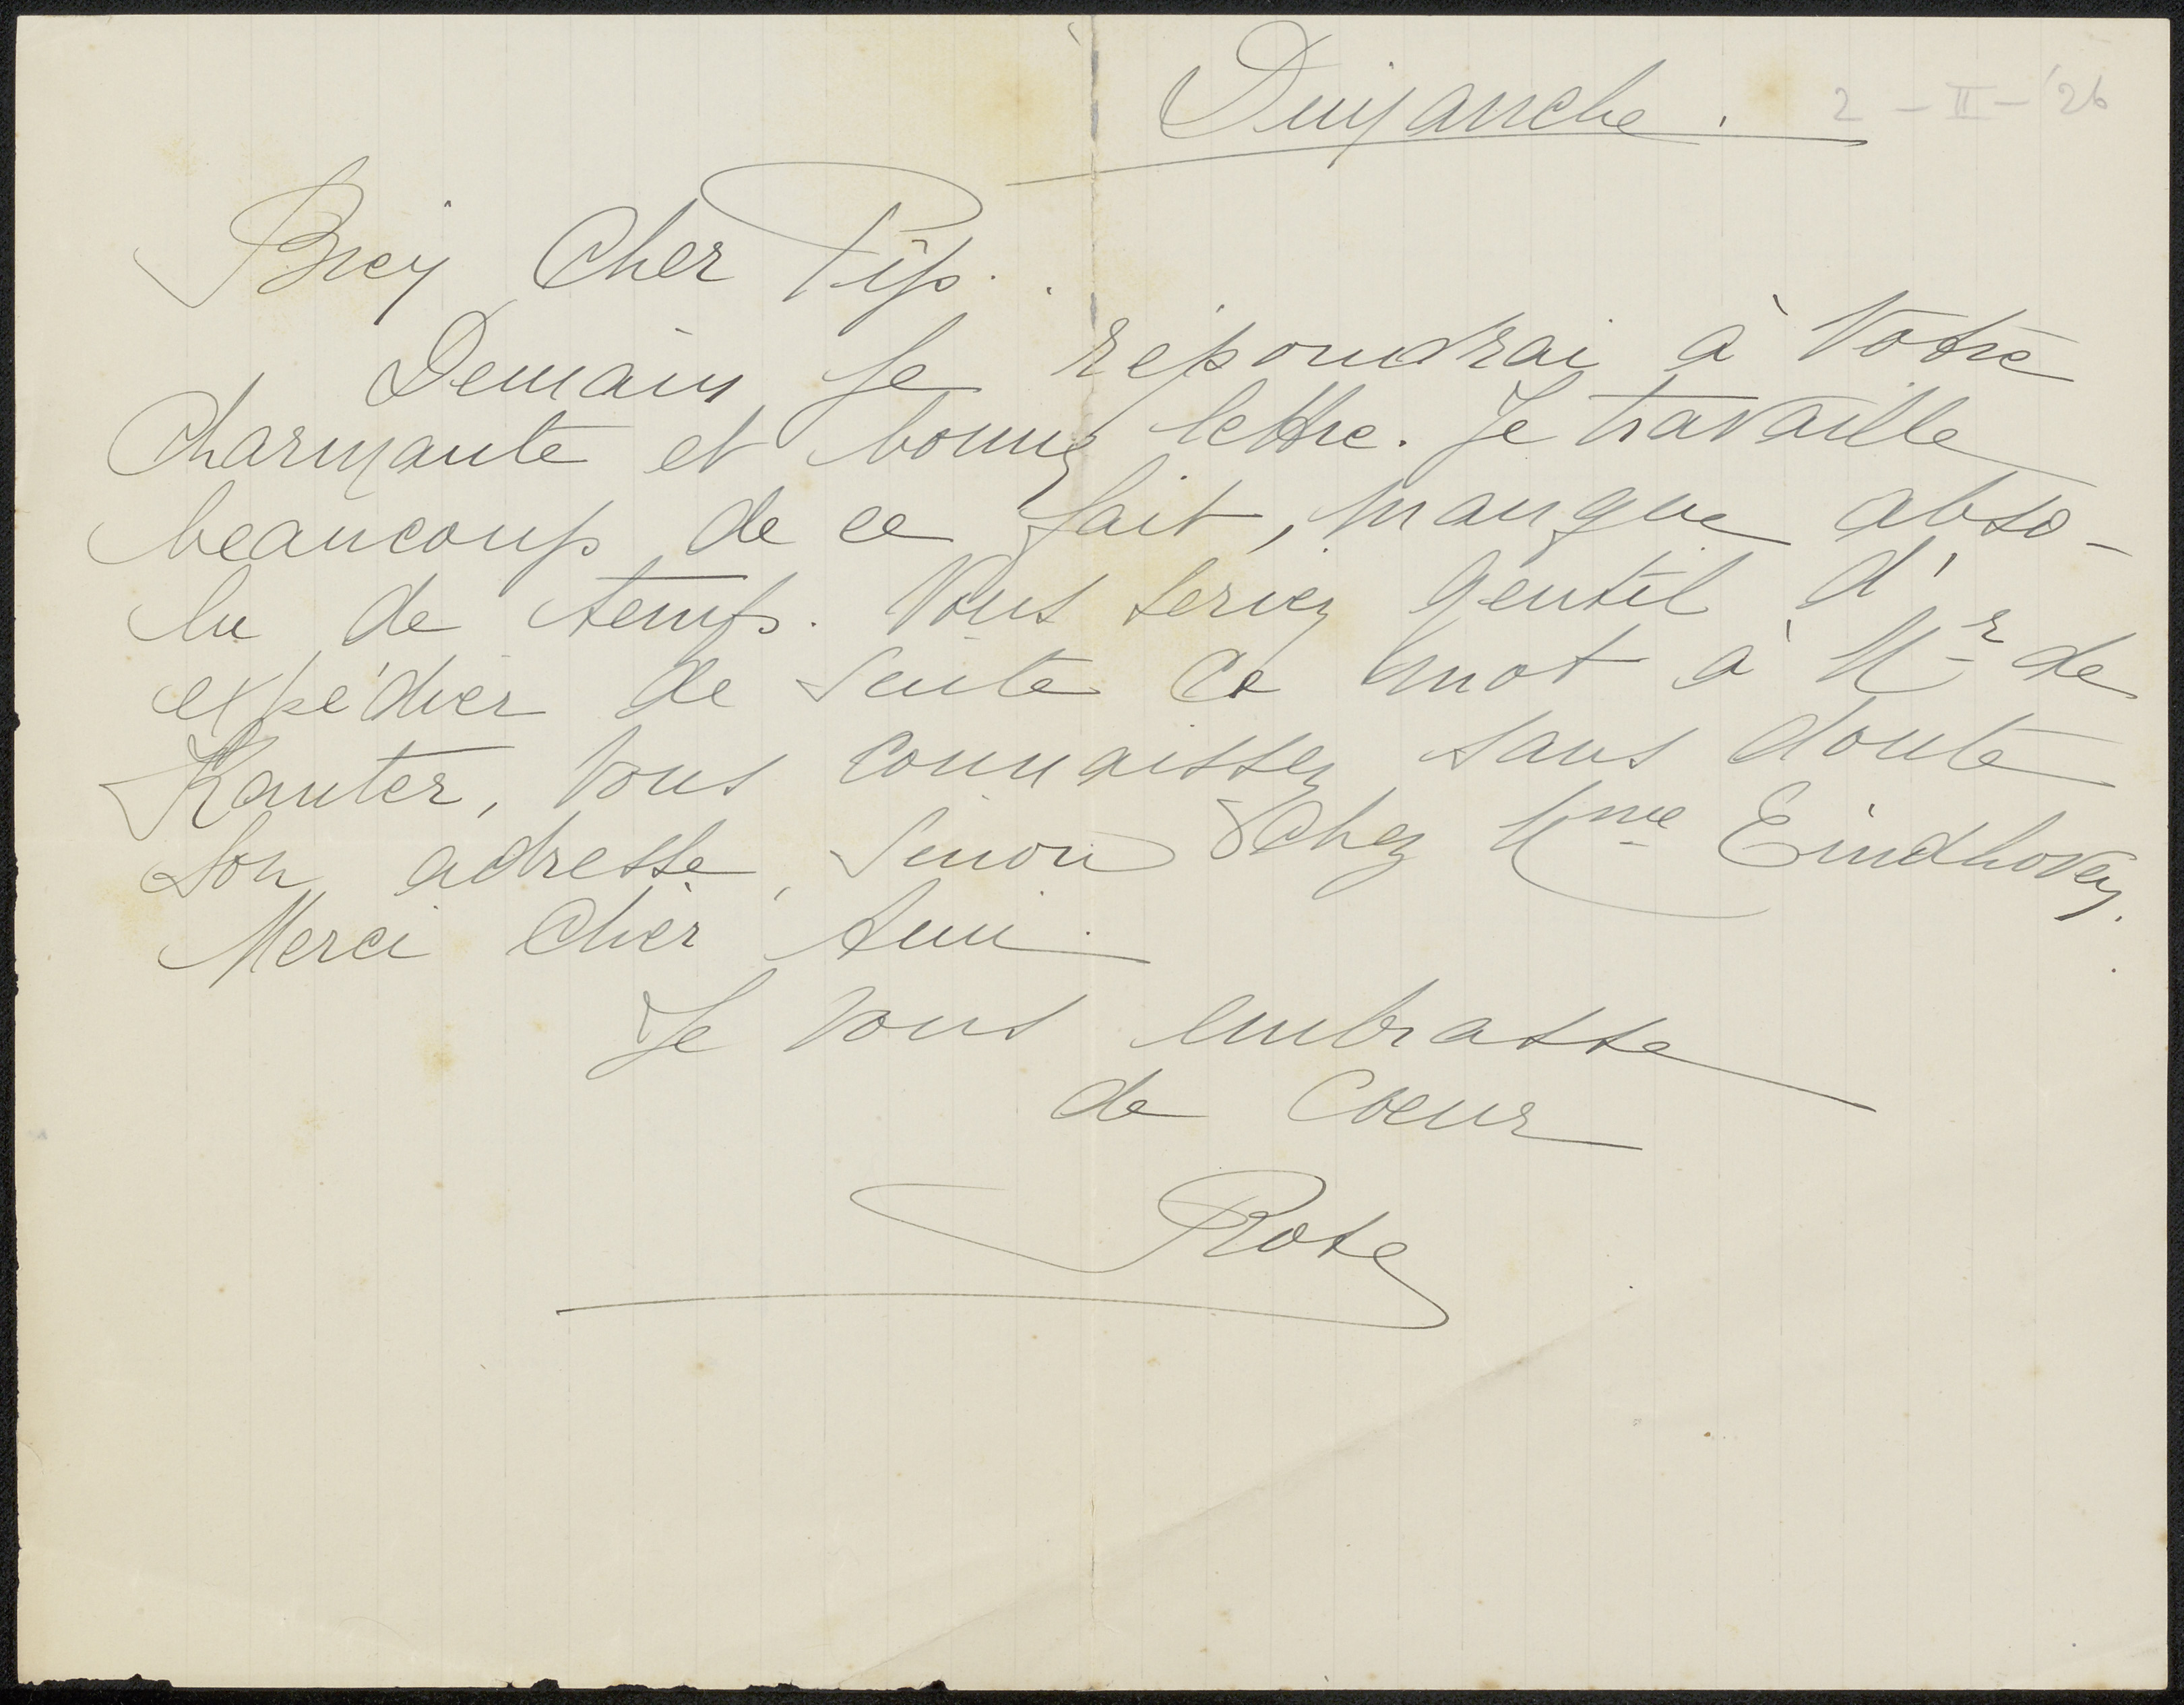 Dimanche. 2 - II - '26
Bien Cher Pip.
Demain je répondrai à Votre
Charmante et bonne lettre. Je travaille
beaucoup de ce fait, manque abso-
lu de temps. Vous seriez gentil d'
expédier de suite ce mot à Mr de
Kanter, vous connaissez sans doute
son adresse, sinon Chez Mme Eindhoven.
Merci Cher Ami.
Je vous embrasse
de Coeur
Rose